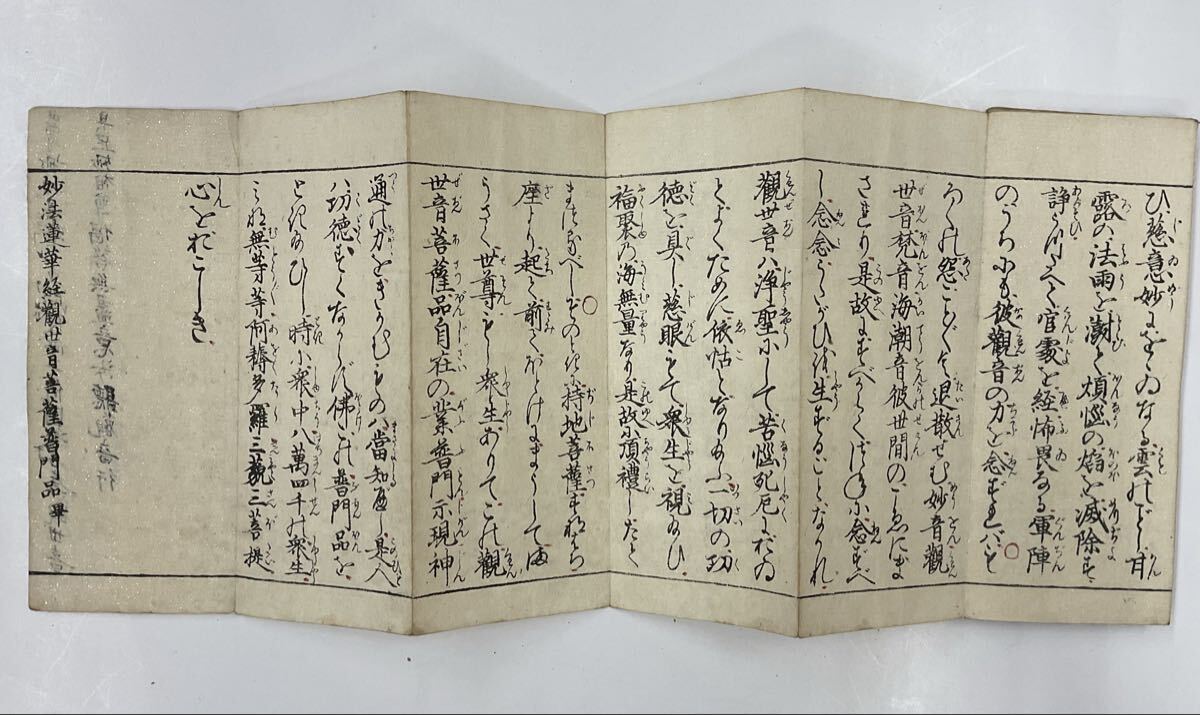 ひ慈意妙なる雲のごとし甘
露の法雨を澍ぎ煩惱の焰を滅除す
諍うつたへて官處を經怖畏なる軍陣
のうちにも彼觀音の力を念ずればもろ
もろの怨ことごとく退散せむ妙音觀
世音梵音海潮音彼世間のこゑにま
されり是故にすべからくつねに念ずべ
し念念うたがひを生ずることなかれ
觀世音は淨聖にして苦惱死厄にをゐ
てよくために依怙となりたまふ一切の功
德を具し慈眼もて衆生を視たまひ
福聚の海無量なり是故に頂禮したて
まつるべしそのときに持地菩薩すなはち
座より起て前てほとけにまうしてま
うさく世尊もし衆生ありてこの觀
世音菩薩品自在の業普門示現神
通の力をきかむものは當知べし是人
は功德すくなからじ佛の普門品を
ときたまひし時に衆中八萬四千の衆生
みな無等等阿耨多羅三藐三菩提
心をおこしき
妙法蓮華經觀世音菩薩普門品